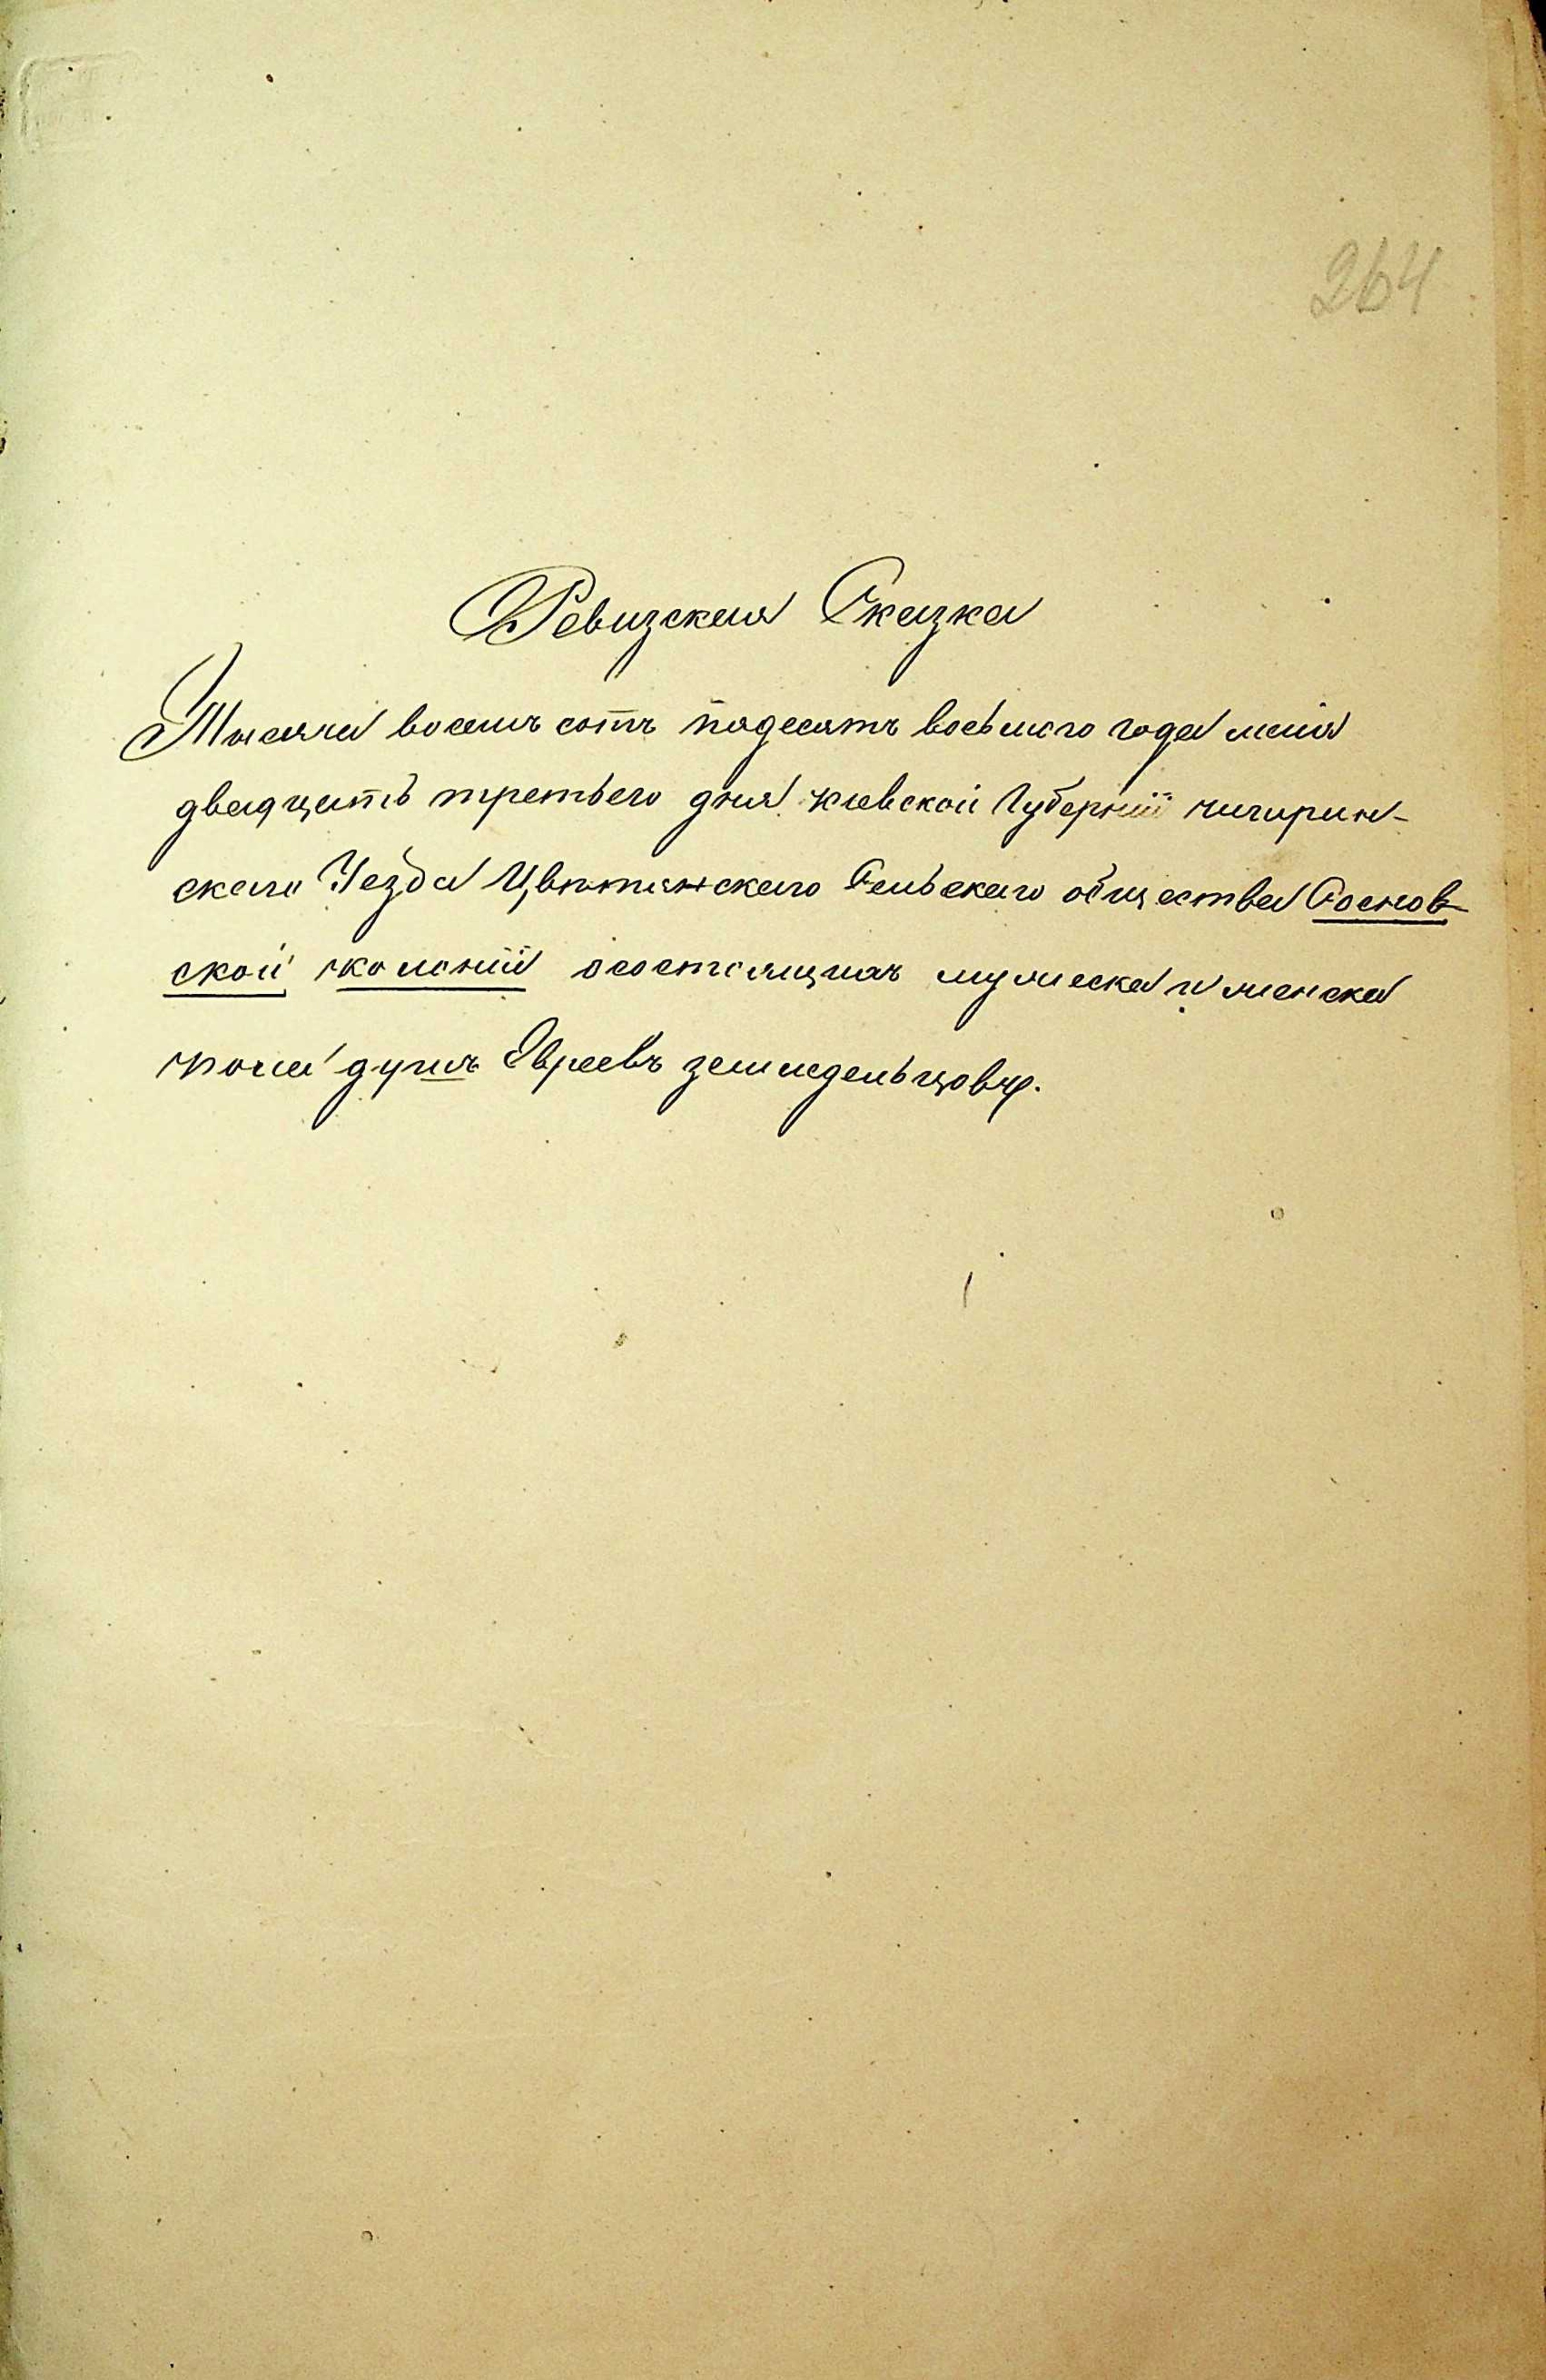 264
Ревизская Сказка
Тысяча восемь сотъ пядесятъ восьмого года маія
двадцать третьего дня Киевской Губерніи чигирин-
скаго Уезда Цвѣтянскаго Сельскаго общества Соснов-
ской колоніи осостоящихъ мужеска и женска
пола душъ Евреевъ земледельцовъ.